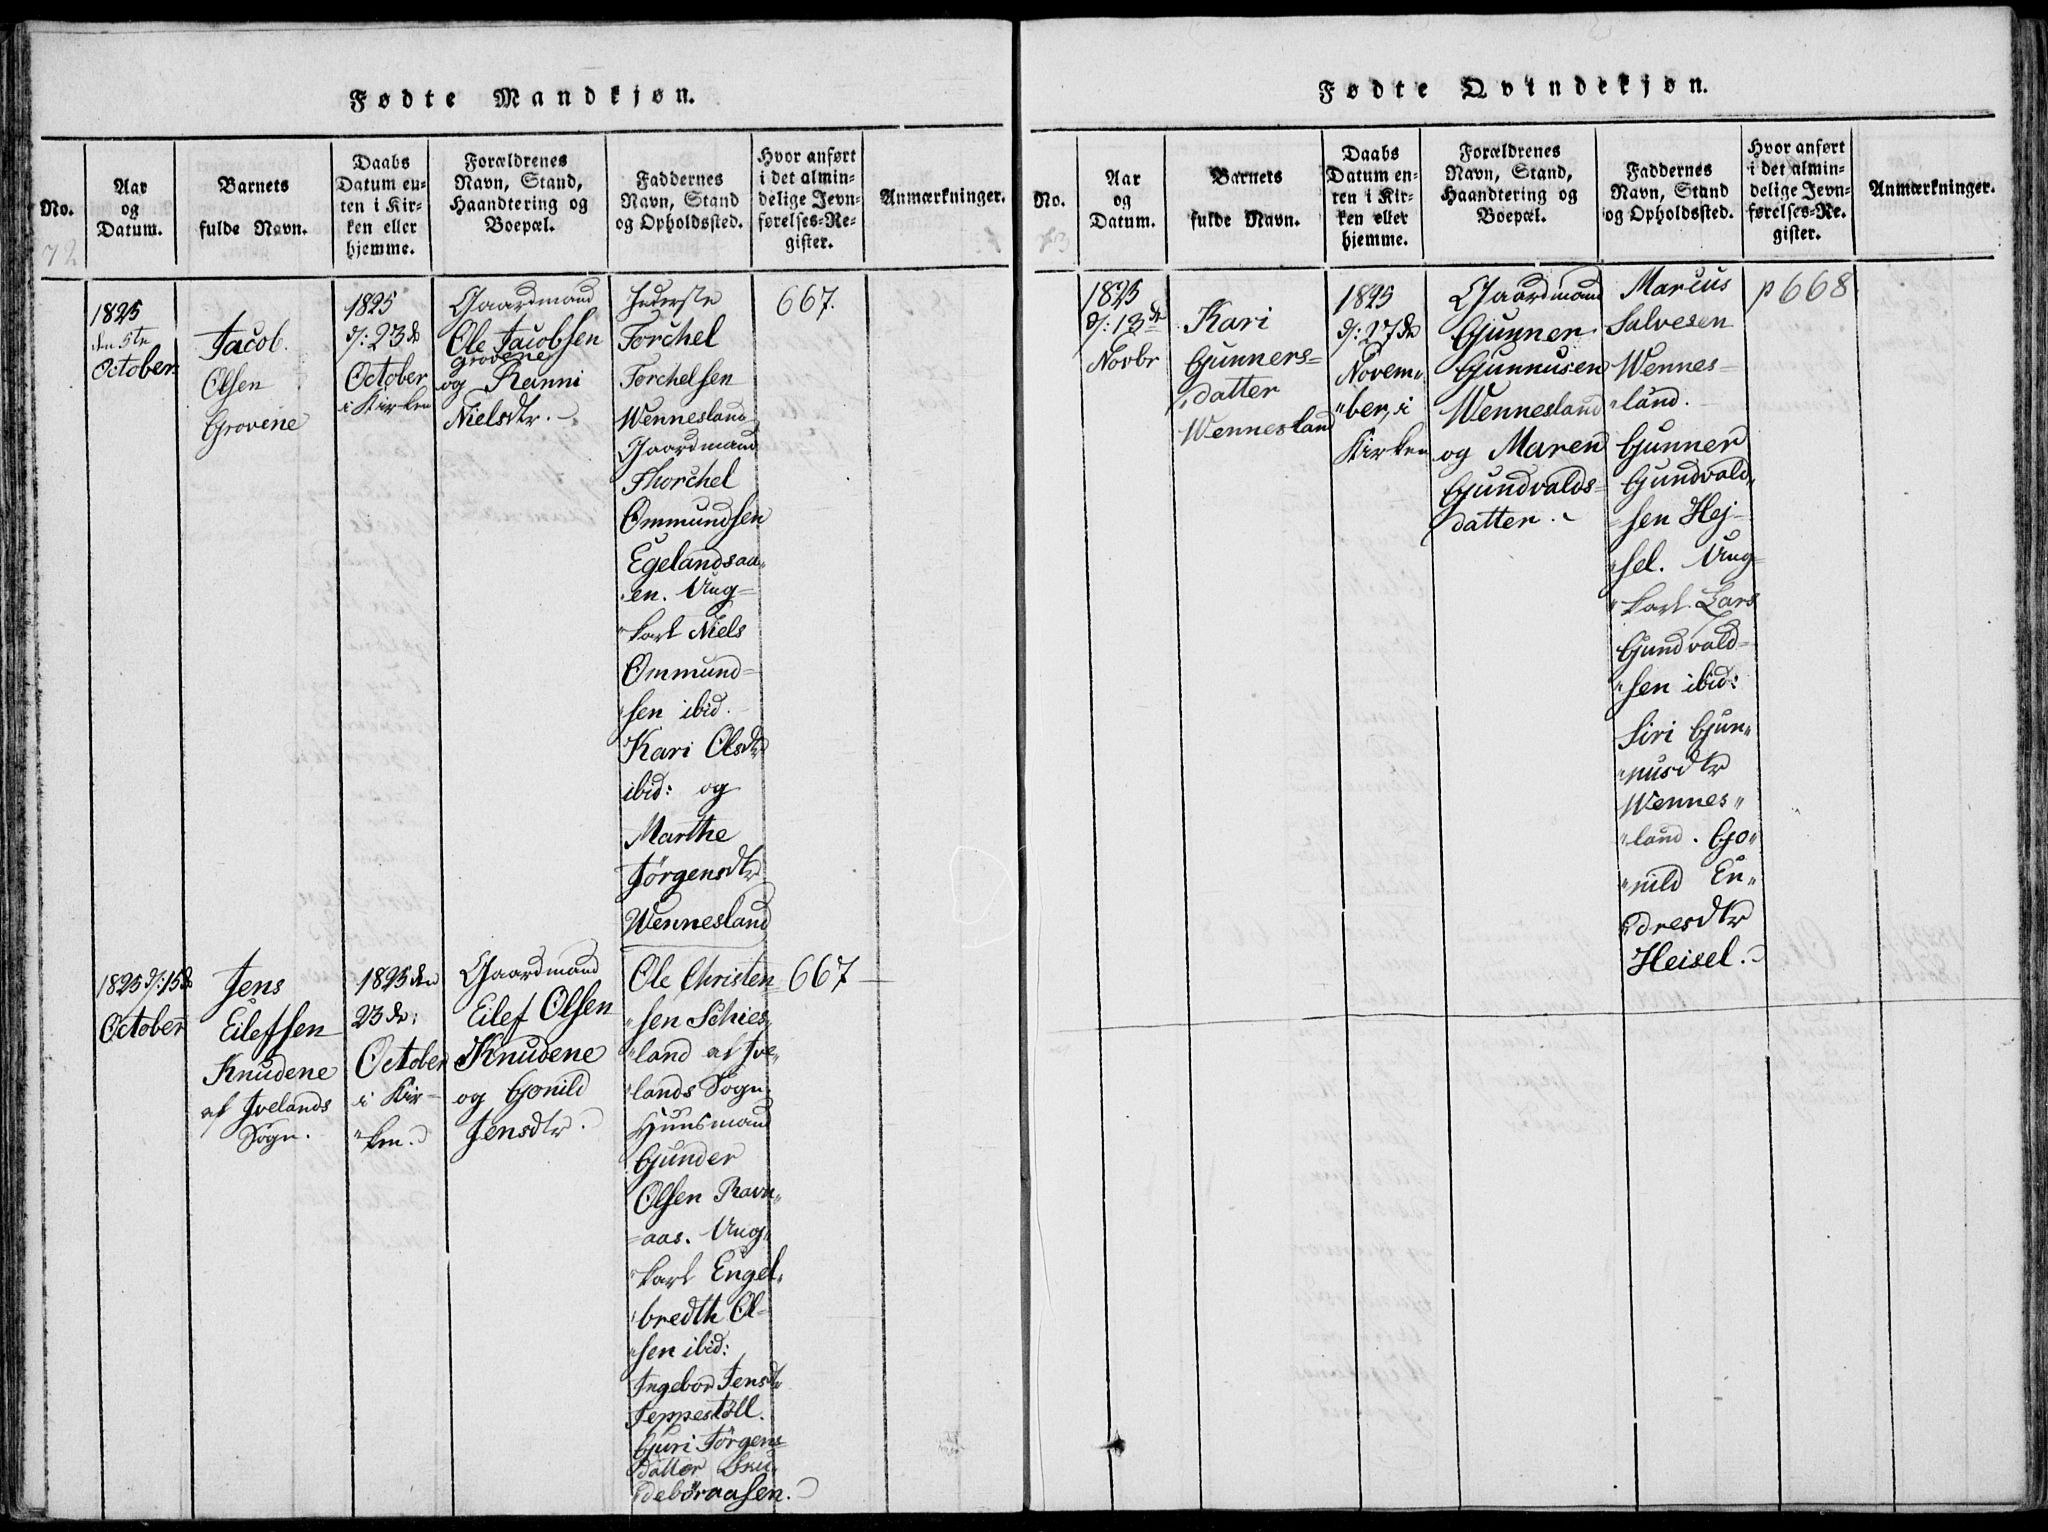 Fødte Mandkjøn.
No.
Aar
og
Datum.
Barnets
fulde Navn.
Daabs
Datum en-
ten i Kir-
ken eller
hjemme.
Forældrenes
Navn, Stand,
Haandtering og
Boepæl.
Faddernes
Navn, Stand
og Opholdssted.
Hvor anført
i det almin-
delige Jevn-
førelses-Re-
gister.
Anmærkninger.
72
1825
den 5te
October
Jacob
Olsen
Grovene
1825
d/: 23de
October
i Kirken
Gaardmand
Ole Jacobsen
Grovene
og Ranni
Nielsdtr.
Inderste
Torchel
Torchelsen
Wennesland
Gaardmand
Thorchel
Ommundsen
Egelandsaa-
en. Ung-
karl Niels
Ommund-
sen ibid.
Kari Olsdtr
ibid: og
Marthe
Jörgensdtr
Wennesland
667.
1825 d/: 15de
October
Jens
Eilefsen
Knudene
af Ivelands
Sogn.
1825 den
23de:
October
i Kir-
ken.
Gaardmand
Eilef Olsen
Knudene
og Gonild
Jensdtr.
Ole Christen-
sen Schies-
land af Ive-
lands Sogn.
Huusmand
Gunder
Olsen Ravn-
aas. Ung-
karl Engel-
bredth Ol-
sen ibid:
Ingebor Jensdtr
Jeppestöll.
Guri Jörgens-
datter
deböraasen.
667
Fødte Qvindekjøn.
No.
Aar
og
Datum.
Barnets
fulde Navn.
Daabs
Datum en-
ten i Kir-
ken eller
hjemme.
Forældrenes
Navn, Stand,
Haandtering og
Boepæl.
Faddernes
Navn, Stand
og Opholdssted.
Hvor anført
i det almin-
delige Jevn-
førelses-Re-
gister.
Anmærkninger.
73
1825
d/: 13de
Novbr
Kari
Gunners-
datter
Wennesland
1825
d/: 27de
Novem-
ber, i
Kirken
Gaardmand
Gunner
Gunnusen
Wennesland
og Maren
Gundvalds-
datter.
Marcus
Salvesen
Wennes-
land.
Gunner
Gundvald-
sen Hej-
sel. Ung-
karl. Lars
Gundvald-
sen ibid:
Siri Gun-
nusdtr
Wennes-
land. Go-
nild En-
dresdtr
Heisel.
p 668